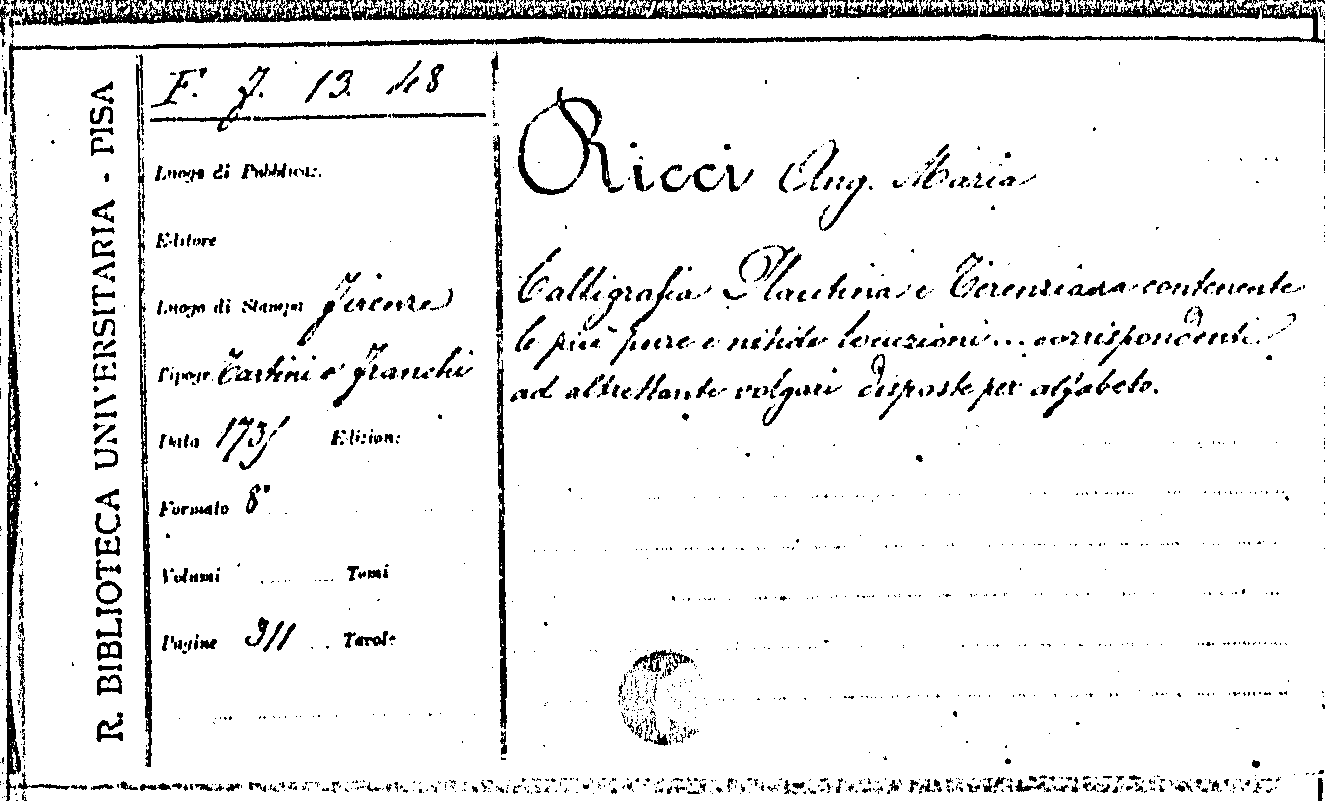 R. BIBLIOTECA UNIVERSITARIA - PISA
F. J. 13. 48
Luogo di Pubblicaz.
Editore
Luogo di Stampa Firenze
Tipogr. Tartini e Franchi
Data 1735 Edizione
Formato 8°
Volumi Tomi
Pagine 311 Tavole
Ricci Ang. Maria
Calligrafia Plautina e Terenziana contenente
le più pure e nitide locuzioni... corrispondenti
ad altrettante volgari disposte per alfabeto.